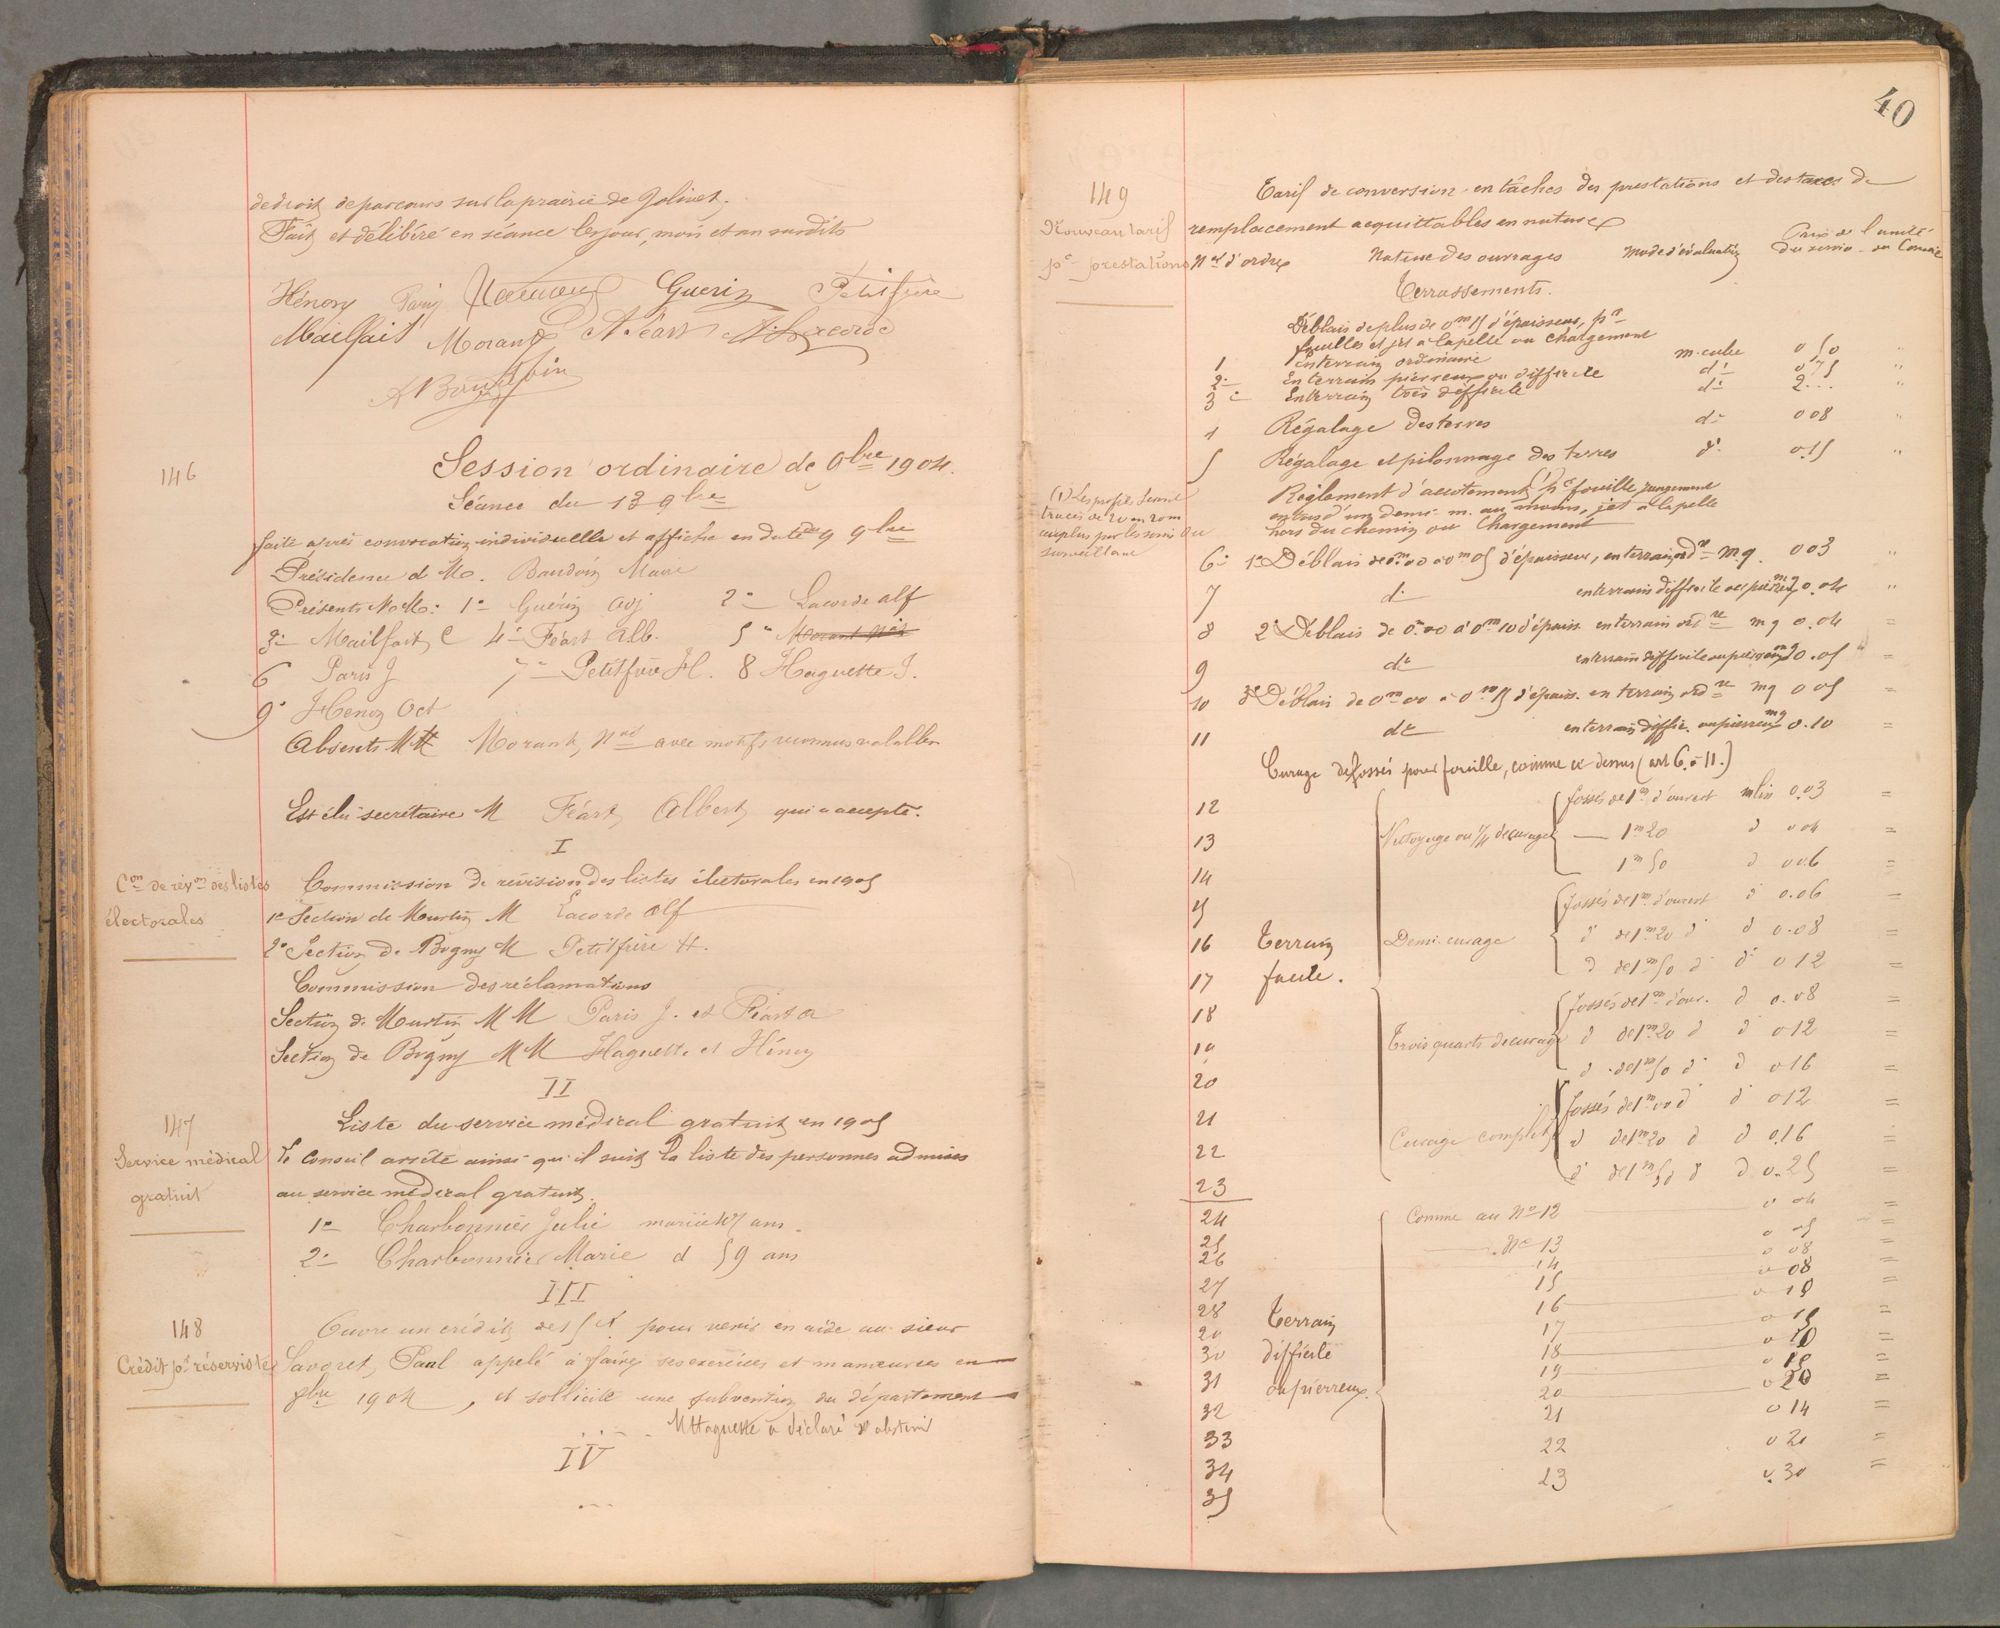 de droit de parcours sur la prairie de Golinet.
Fait et délibéré en séance les jour, mois et an susdits
Hénoy Paris Guerin Petitfrère
Mailfait Morant A Féart A. Lacorde
A Baudoin
146
Session ordinaire de 9bre 1904.
Séance du 13 9bre
faite après convocation individuelle et affiche en date du 9 9bre
Présidence d M. Baudoin Maire
Présents M.M: 1° Guérin Adj 2° Lacorde Alf
3° Mailfait C 4° Féart Alb. 5° Morant Nat
6 Paris J 7° Petitfrère H. 8 Haguette J.
9° Henoy Oct
Absents MM Morant, avec motifs reconnus valables
Est élu secrétaire M Féart Albert qui a accepté.
I
Con de révon des listes
électorales
Commission de révision des listes électorales en 1905
1e Section de Murtin M Lacorde Alf
2e Section de Bogny M Petitfrère H.
Commission des réclamations
Section de Murtin MM Paris J. et Féart A
Section de Bogny MM Haguette et Hénoy
II
147
Service médical
gratuit
Liste du service médical gratuit en 1905
Le Conseil arrête ainsi qu'il suit la liste des personnes admises
au service médical gratuit.
1° Charbonnier Julie ans.
2° Charbonnier Marie d 59 ans
III
148
Crédit pr réserviste
Ouvre un crédit de pour venir en aide au sieur
Savoret, Paul appelé à faire ses exercices et manœuvres en
8bre 1904, et sollicite une subvention du département
M Haguette a déclaré s'abstenir
IV
40
149
Nouveau tarif
pr prestations
Tarif de conversion en tâches des prestations et des taxes de
remplacement acquittables en nature
Nos d'ordre Nature des ouvrages Mode d'évaluation Prix de l'unité
Terrassements.
Déblais de plus de 0m15 d'épaisseur, pr
fouilles et jet à la pelle ou chargement
1 en terrain ordinaire m. cube 0 50 "
2° En terrain pierreux ou difficile d° 0 75 "
3° En terrain très difficile d° 2.. "
4 Régalage des terres d° 0 08 "
5 Régalage et pilonnage des terres d° 0.15 "
(1) Les profils seront
tracés de 20 en 20 m
au plus par les soins du
surveillant
Règlement d'accotement (1) pr fouille, rangement
en tas d'un demi-m. au moins, jet à la pelle
hors du chemin ou chargement
6° 1° Déblais de 0m00 à 0m05 d'épaisseur, en terrain ordre mq. 0 03 "
7 d° en terrain difficile ou pierreux mq 0.04 "
8 2° Déblais de 0m00 à 0m10 d'épaiss. en terrain ordre mq 0.04 =
9 d° en terrain difficile ou pierreux mq 0.05 =
10 3° Déblais de 0m00 à 0m15 d'épaiss. en terrain ordre mq 0 05 =
11 d° en terrain diffic. ou pierreux mq 0.10 =
Curage de fossés pour fouille, comme ci dessus (art 6 à 11.)
12 fossés de 1m d'ouvert mlin 0.03 =
13 Nettoyage ou 1/4 de curage 1m20 d 0 04 =
14 1m50 d 0 06 =
15 fossés de 1m d'ouvert d 0.06 =
16 Terrain Demi-curage d de 1m20 d d 0.08 =
17 facile. d de 1m50 d d° 0 12 =
18 fossés de 1m d'ouv. d 0.08 =
19 Trois quarts de curage d de 1m20 d d 0 12 =
20 d de 1m50 d d 0 16 =
21 fossés de 1m00 d d 0 12 =
22 Curage complet d de 1m20 d d 0.16 =
23 d de 1m50 d d 0.25 =
24 Comme au N° 12 0 04 =
25 N° 13 0 05 =
26 14 0 08 =
27 15 0 08 =
28 Terrain 16 0 10 =
29 17 0 15 =
30 difficile 18 0 10 =
31 ou pierreux. 19 0 15 =
32 20 0 20 =
33 21 0 14 =
34 22 0 20 =
35 23 0.30 =